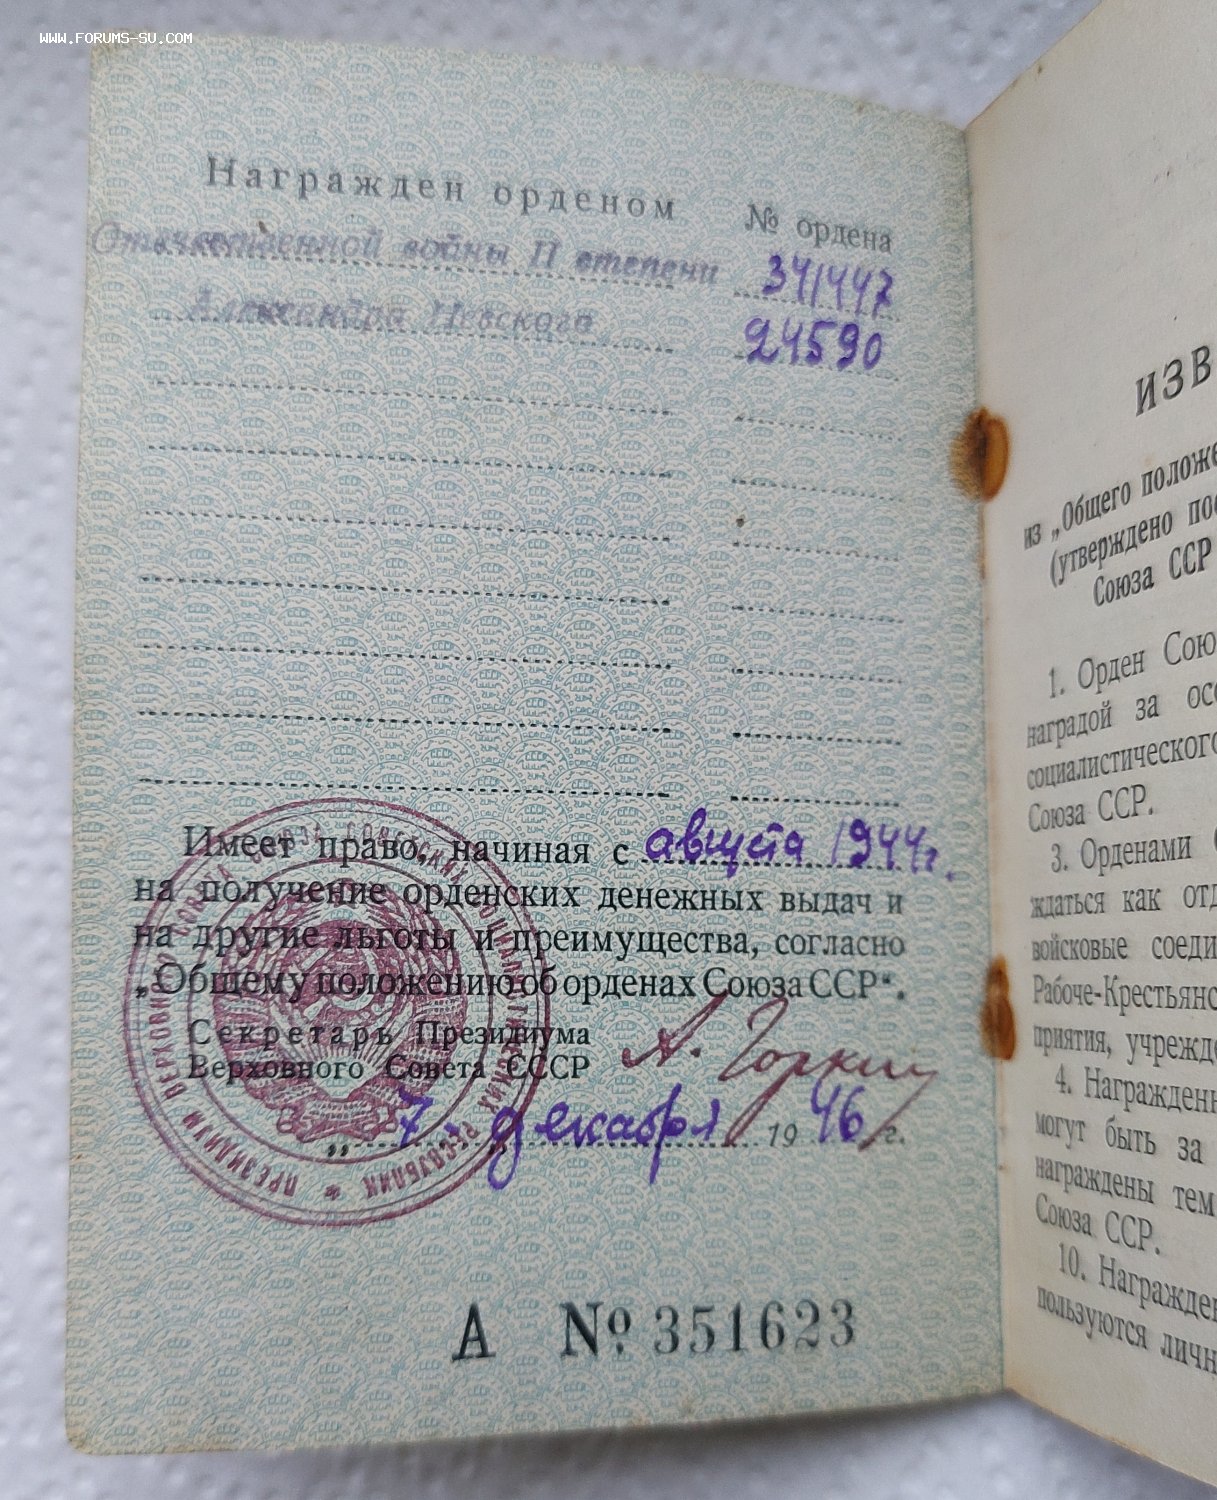 WWW.FORUMS-SU.COM
Награжден орденом № ордена
Отечественной войны II степени 341447
Александра Невского 24590
Имеет право, начиная с августа 1944г.
на получение орденских денежных выдач и
на другие льготы и преимущества, согласно
„Общему положению об орденах Союза ССР“.
Секретарь Президиума
Верховного Совета СССР А. Горкин
„ 7 „ декабря 1946 г.
ПРЕЗИДИУМ ВЕРХОВНОГО СОВЕТА СОЮЗА СОВЕТСКИХ СОЦИАЛИСТИЧЕСКИХ РЕСПУБЛИК
А № 351623
ИЗВ
из „Общего положе
(утверждено пос
Союза ССР
1. Орден Сою
наградой за осо
социалистического
Союза ССР.
3. Орденами С
ждаться как отд
войсковые соеди
Рабоче-Крестьянс
приятия, учрежд
4. Награжденн
могут быть за
награждены тем
Союза ССР.
10. Награжден
пользуются личн